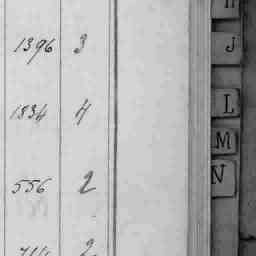 H
1396 3
J
1834 4
L
M
556 2
N
2